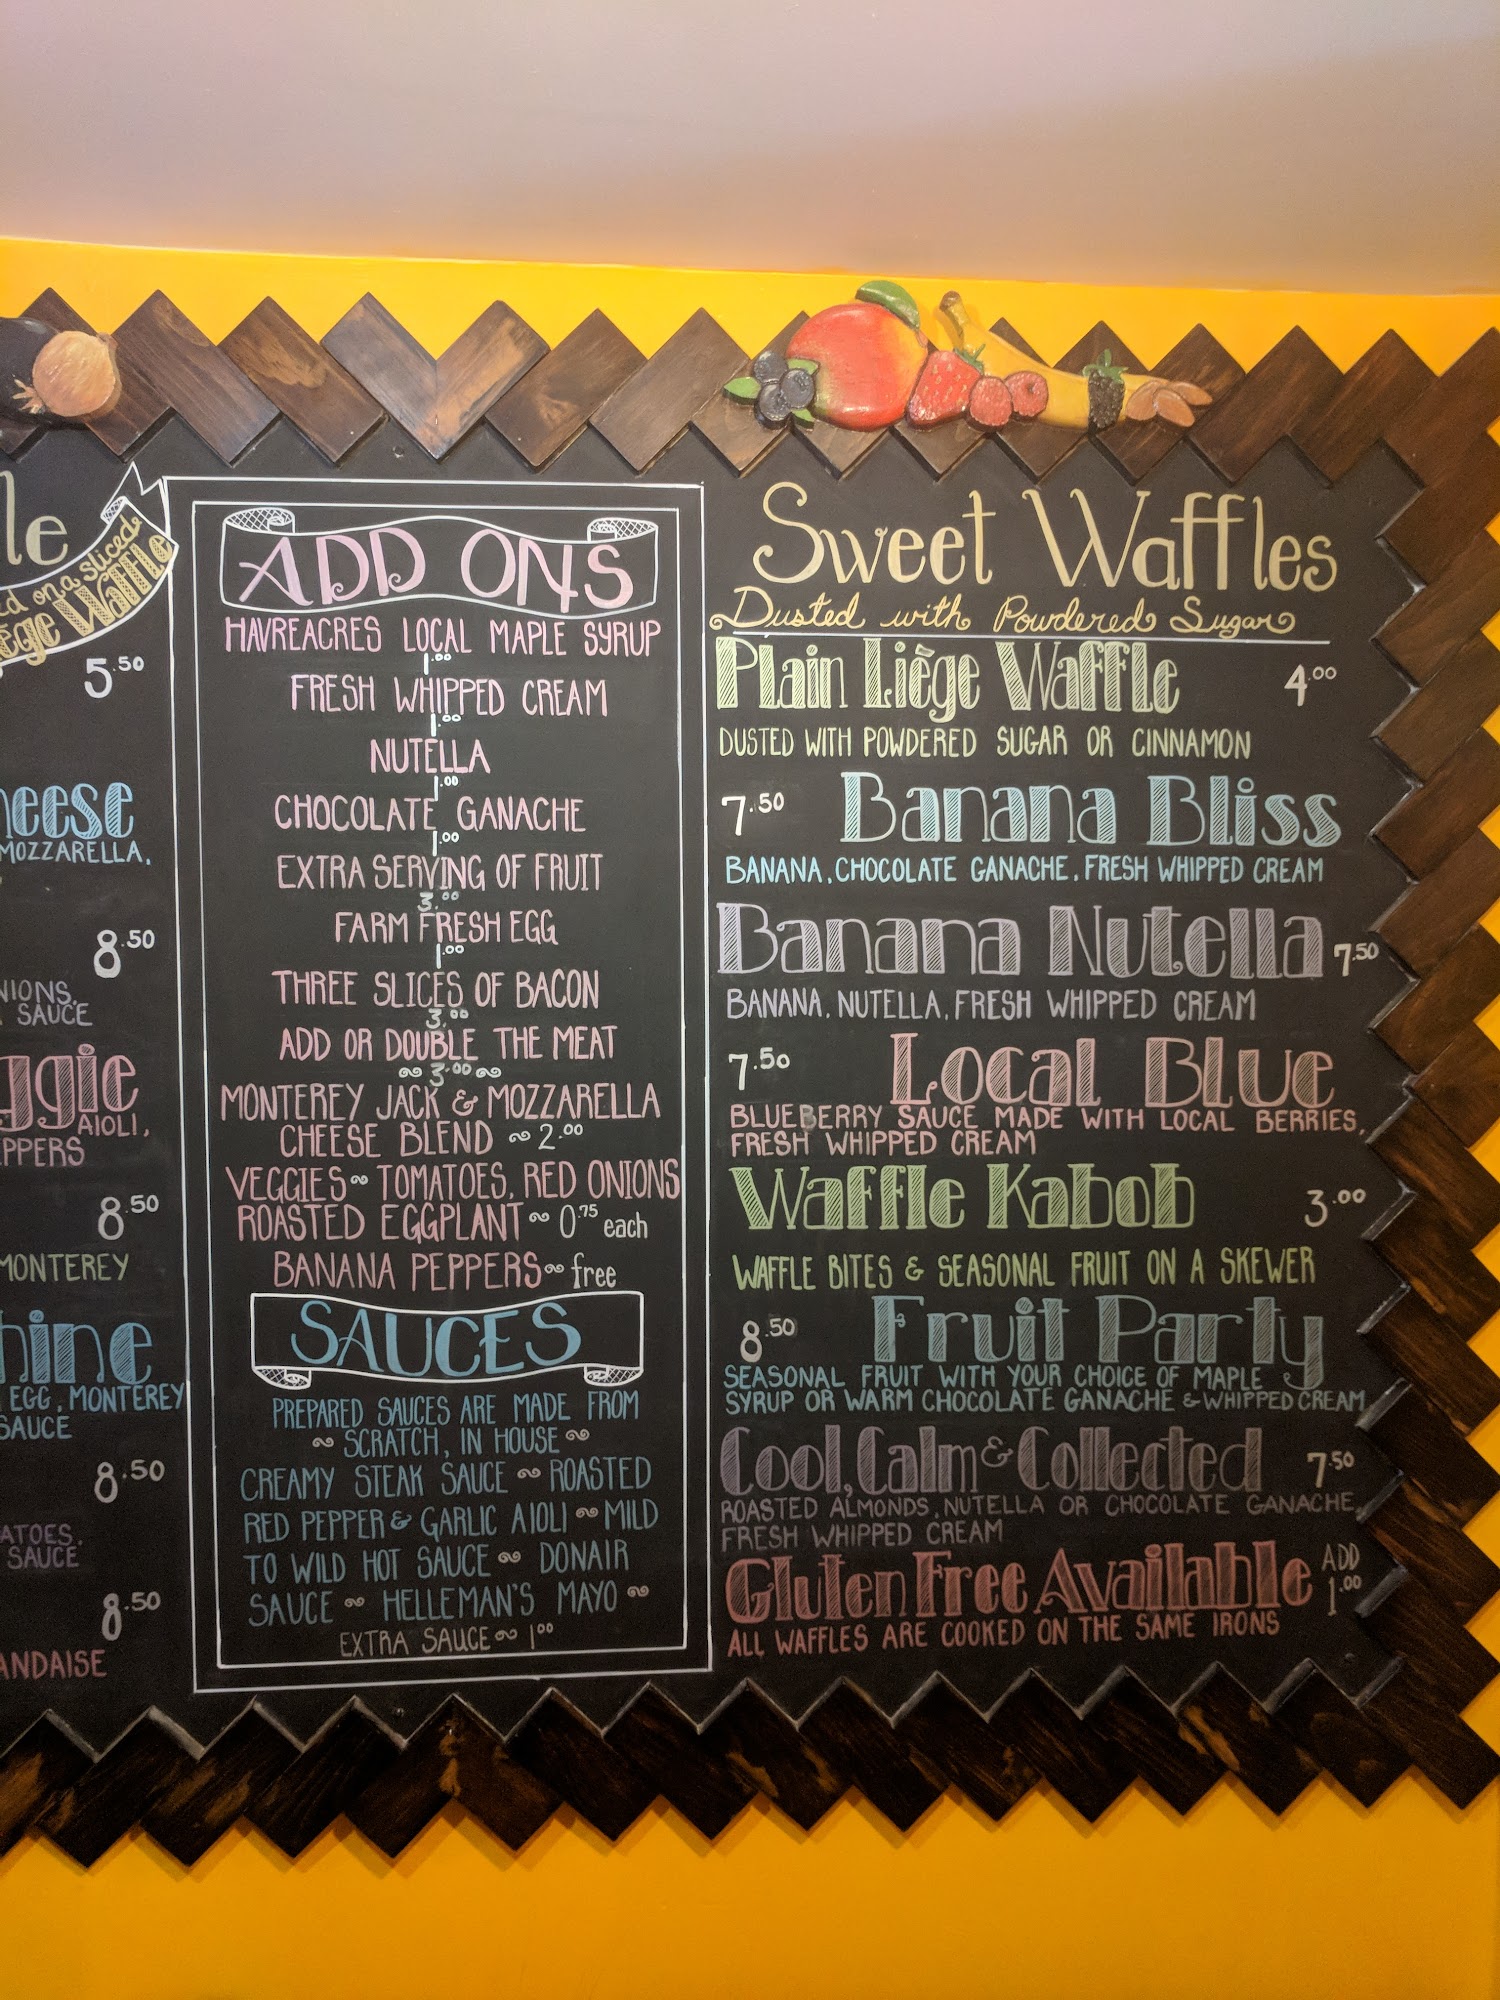 le
ed on a sliced
ège Waffle
5.50
heese
MOZZARELLA,
8.50
NIONS,
SAUCE
ggie
AIOLI,
PPERS
8.50
MONTEREY
hine
EGG, MONTEREY
SAUCE
8.50
ATOES,
SAUCE
8.50
ANDAISE
ADD ONS
HAVREACRES LOCAL MAPLE SYRUP
1.00
FRESH WHIPPED CREAM
1.00
NUTELLA
1.00
CHOCOLATE GANACHE
1.00
EXTRA SERVING OF FRUIT
3.00
FARM FRESH EGG
1.00
THREE SLICES OF BACON
3.00
ADD OR DOUBLE THE MEAT
~3.00~
MONTEREY JACK & MOZZARELLA
CHEESE BLEND ~ 2.00
VEGGIES ~ TOMATOES, RED ONIONS
ROASTED EGGPLANT ~ 0.75 each
BANANA PEPPERS ~ free
SAUCES
PREPARED SAUCES ARE MADE FROM
~ SCRATCH, IN HOUSE ~
CREAMY STEAK SAUCE ~ ROASTED
RED PEPPER & GARLIC AIOLI ~ MILD
TO WILD HOT SAUCE ~ DONAIR
SAUCE ~ HELLEMAN'S MAYO ~
EXTRA SAUCE ~ 1.00
Sweet Waffles
Dusted with Powdered Sugar
Plain Liège Waffle 4.00
DUSTED WITH POWDERED SUGAR OR CINNAMON
7.50 Banana Bliss
BANANA, CHOCOLATE GANACHE, FRESH WHIPPED CREAM
Banana Nutella 7.50
BANANA, NUTELLA, FRESH WHIPPED CREAM
7.50 Local Blue
BLUEBERRY SAUCE MADE WITH LOCAL BERRIES,
FRESH WHIPPED CREAM
Waffle Kabob 3.00
WAFFLE BITES & SEASONAL FRUIT ON A SKEWER
8.50 Fruit Party
SEASONAL FRUIT WITH YOUR CHOICE OF MAPLE
SYRUP OR WARM CHOCOLATE GANACHE & WHIPPED CREAM
Cool, Calm & Collected 7.50
ROASTED ALMONDS, NUTELLA OR CHOCOLATE GANACHE,
FRESH WHIPPED CREAM
Gluten Free Available ADD 1.00
ALL WAFFLES ARE COOKED ON THE SAME IRONS